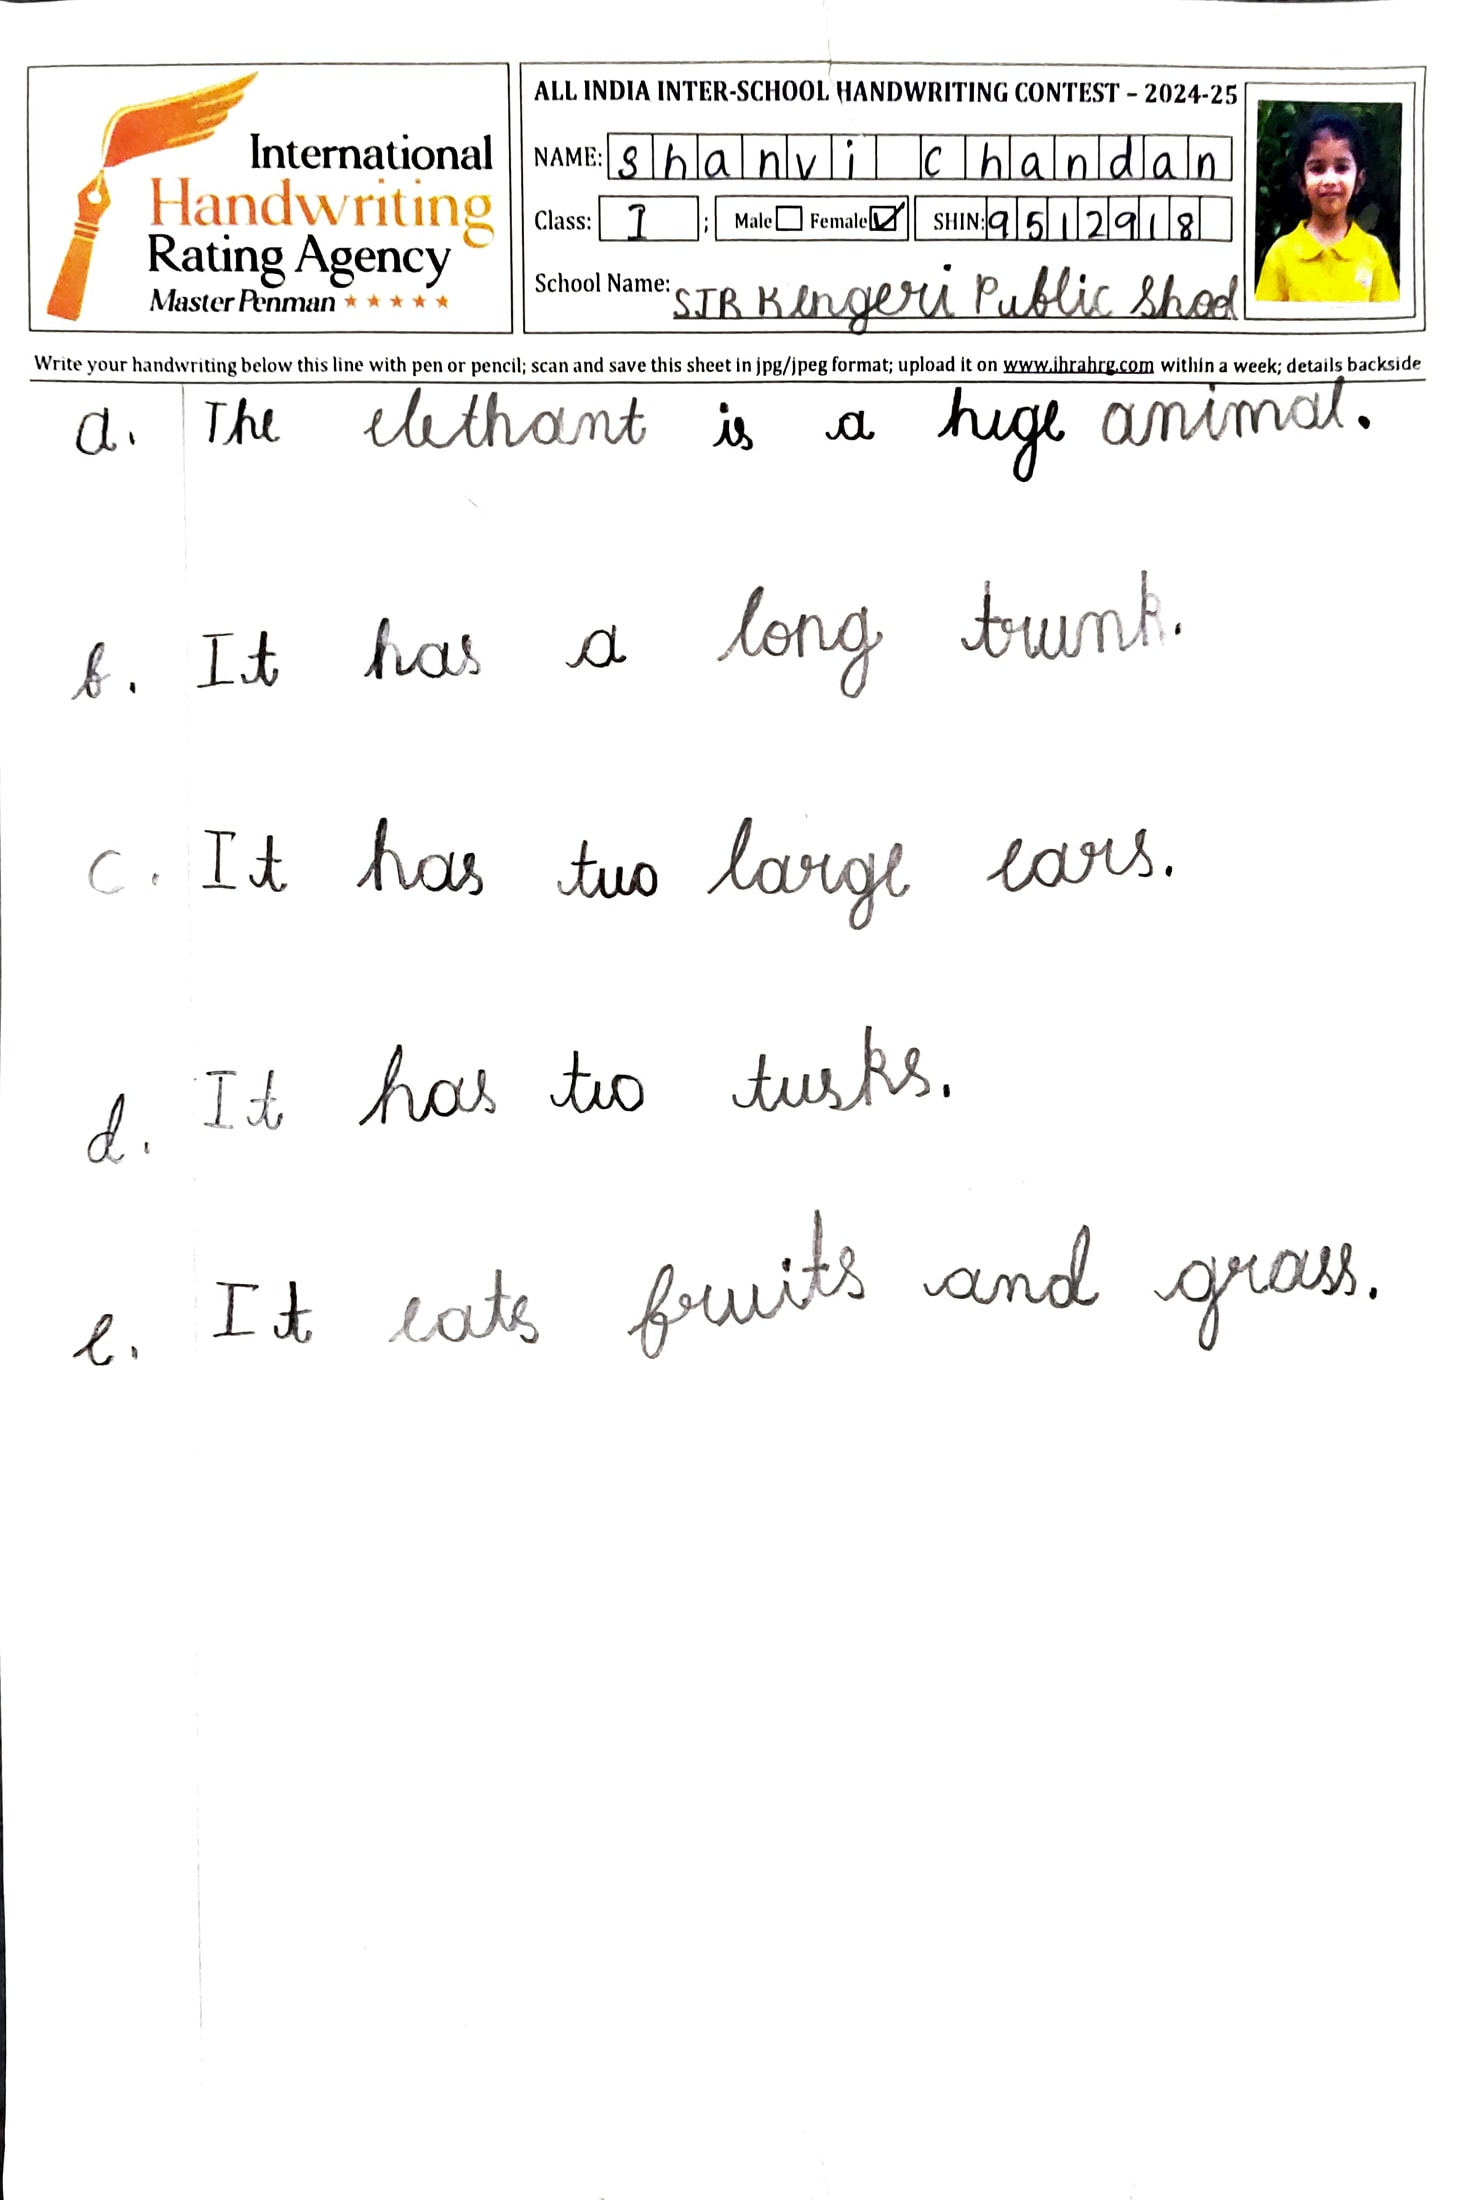 International
Handwriting
Rating Agency
Master Penman
ALL INDIA INTER-SCHOOL HANDWRITING CONTEST – 2024-25
NAME: shanvi chandan
Class: I ; Male Female SHIN: 9512918
School Name: SJR Kengeri Public Shool
Write your handwriting below this line with pen or pencil; scan and save this sheet in jpg/jpeg format; upload it on www.ihrahrg.com within a week; details backside
a. The elethant is a huge animal.
b. It has a long trunk.
c. It has two large ears.
d. It has two tusks.
e. It eats fruits and grass.